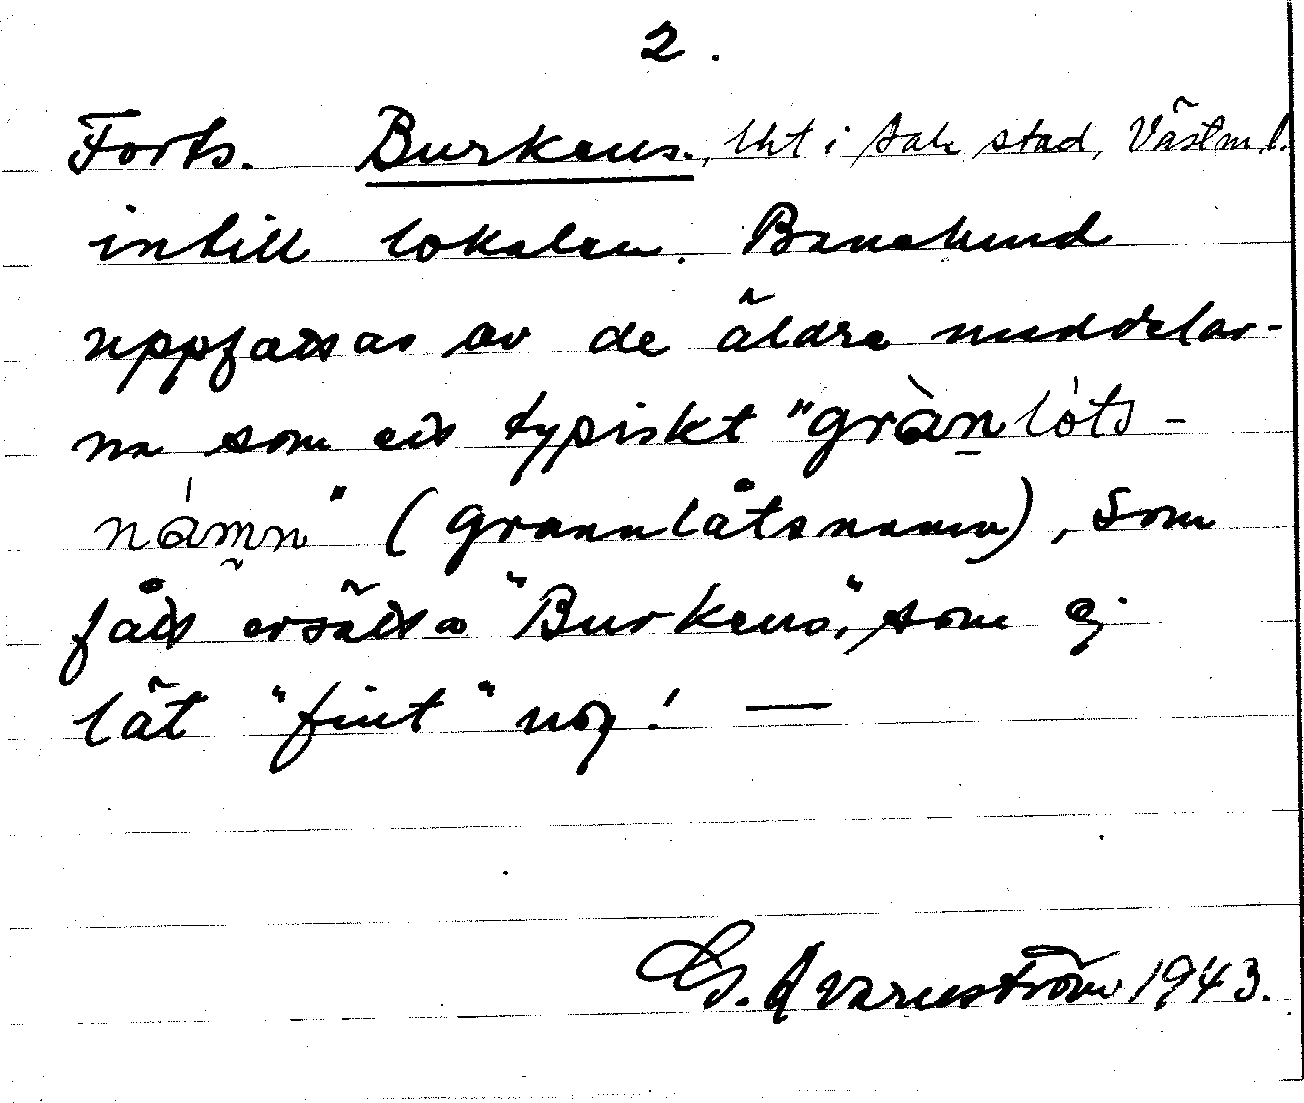 2.
Forts. Burkens., tht i Sala stad, Västm.l.
intill lokalen. Banelund
uppfattas av de äldre meddelar-
na som ett typiskt "gràn lóts-
námn" (grannlåtsnamn), som
fått ersätta "Burkens", som ej
lät "fint" nog! —
G. Kvarnström 1943.